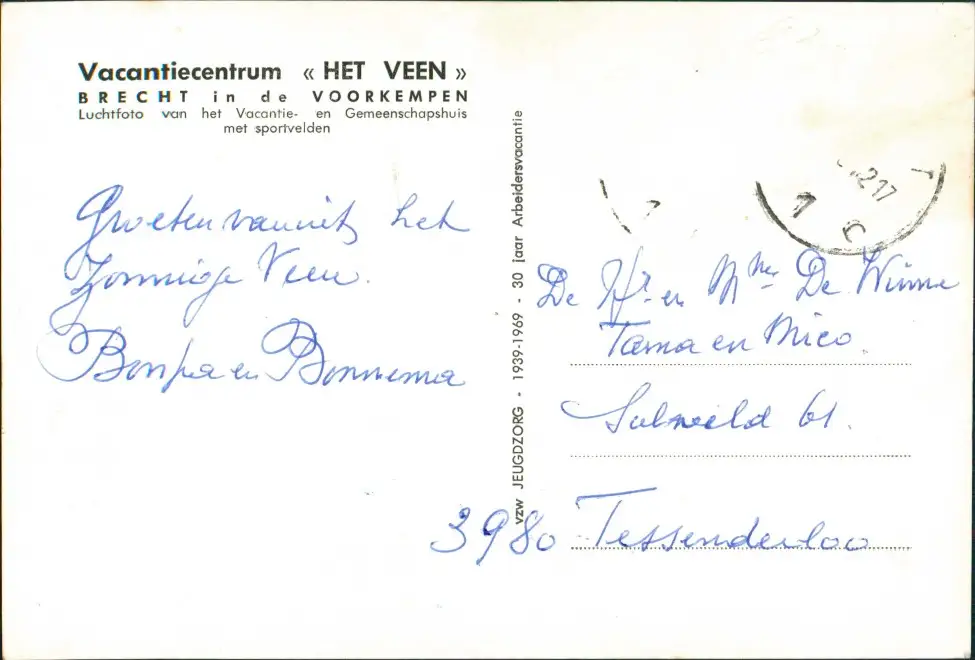 Vacantiecentrum « HET VEEN »
BRECHT in de VOORKEMPEN
Luchtfoto van het Vacantie- en Gemeenschapshuis
met sportvelden
Groeten vanuit het
Zonnige Veen.
Bonpa en Bonnema
vzw JEUGDZORG - 1939-1969 - 30 jaar Arbeidersvacantie
De Hr en Mme De Winne
Tama en Nico.
61.
3980 Tessenderloo